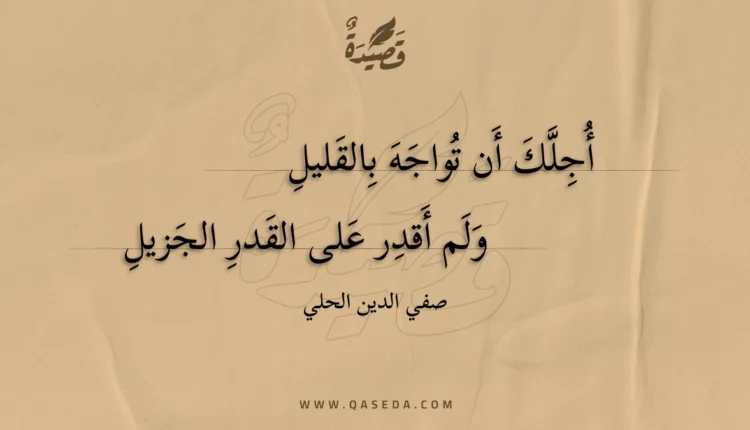 قَصِيْدَةٌ
أُجِلَّكَ أَن تُواجَهَ بِالقَليلِ
وَلَم أَقدِر عَلى القَدرِ الجَزيلِ
صفي الدين الحلي
WWW.QASEDA.COM